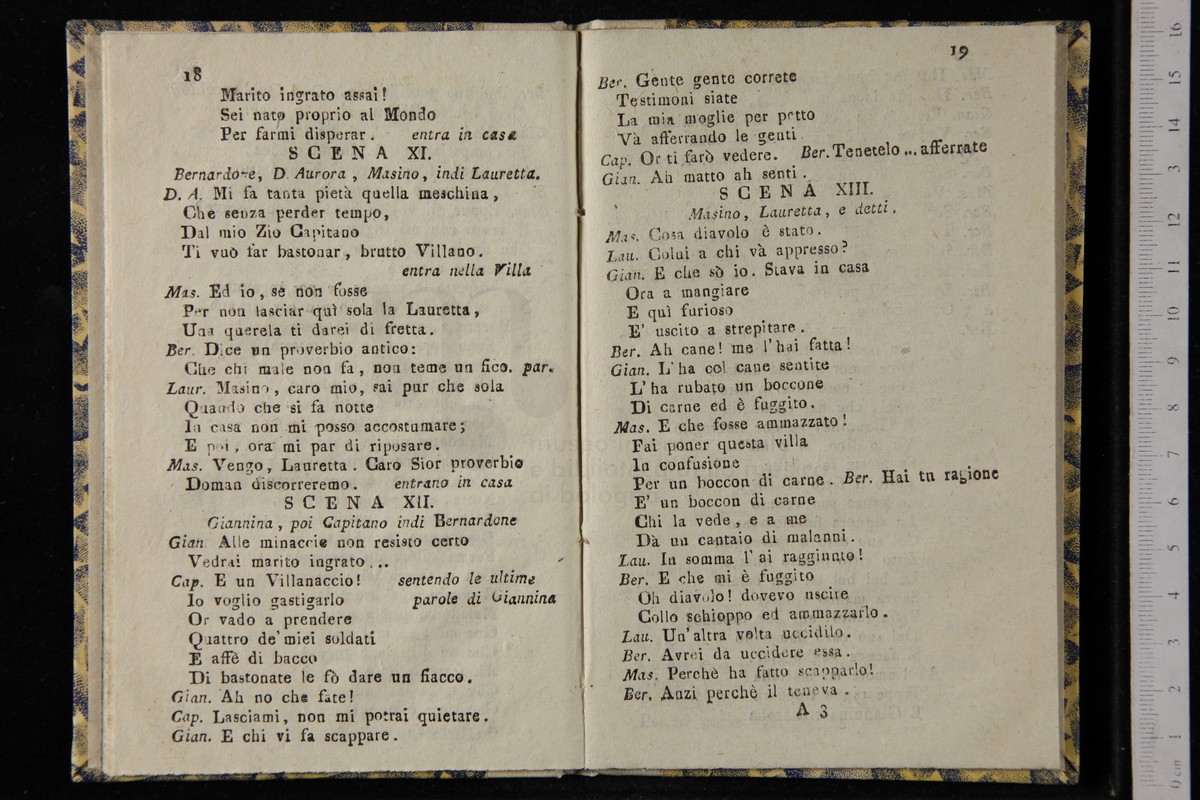 18
Marito ingrato assai!
Sei nato proprio al Mondo
Per farmi disperar. entra in casa
SCENA XI.
Bernardone, D. Aurora, Masino, indi Lauretta.
D. A. Mi fa tanta pietà quella meschina,
Che senza perder tempo,
Dal mio Zio Capitano
Ti vuò far bastonar, brutto Villano.
entra nella Villa
Mas. Ed io, se non fosse
Per non lasciar quì sola la Lauretta,
Una querela ti darei di fretta.
Ber. Dice un proverbio antico:
Che chi male non fa, non teme un fico. par.
Laur. Masino, caro mio, sai pur che sola
Quando che si fa notte
In casa non mi posso accostumare;
E poi, ora mi par di riposare.
Mas. Vengo, Lauretta. Caro Sior proverbio
Doman discorreremo. entrano in casa
SCENA XII.
Giannina, poi Capitano indi Bernardone
Gian. Alle minaccie non resisto certo
Vedrai marito ingrato...
Cap. E un Villanaccio! sentendo le ultime
Io voglio gastigarlo parole di Giannina
Or vado a prendere
Quattro de' miei soldati
E affè di bacco
Di bastonate le fò dare un fiacco.
Gian. Ah no che fate!
Cap. Lasciami, non mi potrai quietare.
Gian. E chi vi fa scappare.
19
Ber. Gente gente correte
Testimoni siate
La mia moglie per petto
Và afferrando le genti
Cap. Or ti farò vedere. Ber. Tenetelo... afferrate
Gian. Ah matto ah senti.
SCENA XIII.
Masino, Lauretta, e detti.
Mas. Cosa diavolo è stato.
Lau. Colui a chi và appresso?
Gian. E che sò io. Stava in casa
Ora a mangiare
E quì furioso
E' uscito a strepitare.
Ber. Ah cane! me l'hai fatta!
Gian. L'ha col cane sentite
L'ha rubato un boccone
Di carne ed è fuggito.
Mas. E che fosse ammazzato!
Fai poner questa villa
In confusione
Per un boccon di carne. Ber. Hai tu ragione
E' un boccon di carne
Chi la vede, e a me
Dà un cantaio di malanni.
Lau. In somma l'ai raggiunto!
Ber. E che mi è fuggito
Oh diavolo! dovevo uscire
Collo schioppo ed ammazzarlo.
Lau. Un'altra volta uccidilo.
Ber. Avrei da uccidere essa.
Mas. Perchè ha fatto scapparlo!
Ber. Anzi perchè il teneva.
A 3